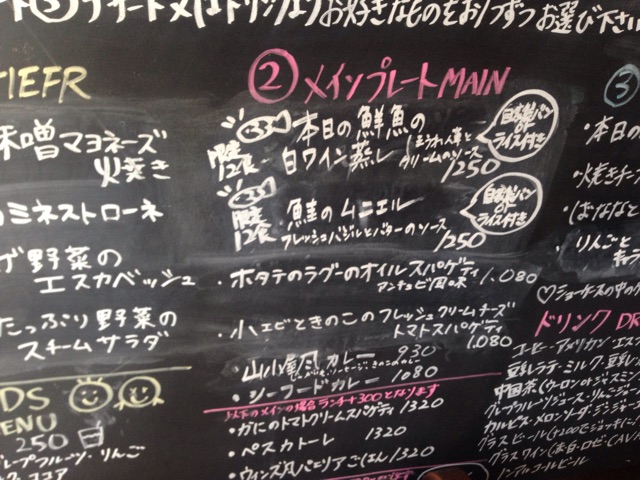 デザート又はドリンクよりお好きなものをお1つずつお選び下さい
味噌マヨネーズ
火焚き
ミネストローネ
げ野菜の
エスカベッシュ
たっぷり野菜の
スチームサラダ
MENU
250円
グレープフルーツ・りんご
ココア
② メインプレート MAIN
限定
12食
本日の鮮魚の
白ワイン蒸し ほうれん草と
クリームのソース
1250
自家製パン
or
ライス付き
限定
12食
鮭のムニエル
フレッシュバジルとバターのソース
1250
自家製パン
or
ライス付き
・ホタテのラグーのオイルスパゲティ
アンチョビ風味 1.080
・小エビときのこのフレッシュクリームチーズ
トマトスパゲティ
1.080
・シーフードカレー 1080
以下のメインの場合ランチ+300となります
・かにのトマトクリームスパゲティ 1320
・ペスカトーレ 1320
・ウィンズ風パエリアごはん 1320
③
・本日の
・焼きチー
・ばななと
・りんごと
キャラ
♡ショーケースの中の
ドリンク DR
コーヒー・アメリカン・エス
豆乳ラテ・ミルク・豆乳
中国茶(ウーロン・ジャスミン
グレープフルーツジュース・りんごジュー
カルピス・メロンソーダ・ジンジャー
グラスビール(+200でジョッキに
グラスワイン(赤・白・ロゼ・CAV
ノンアルコールビール